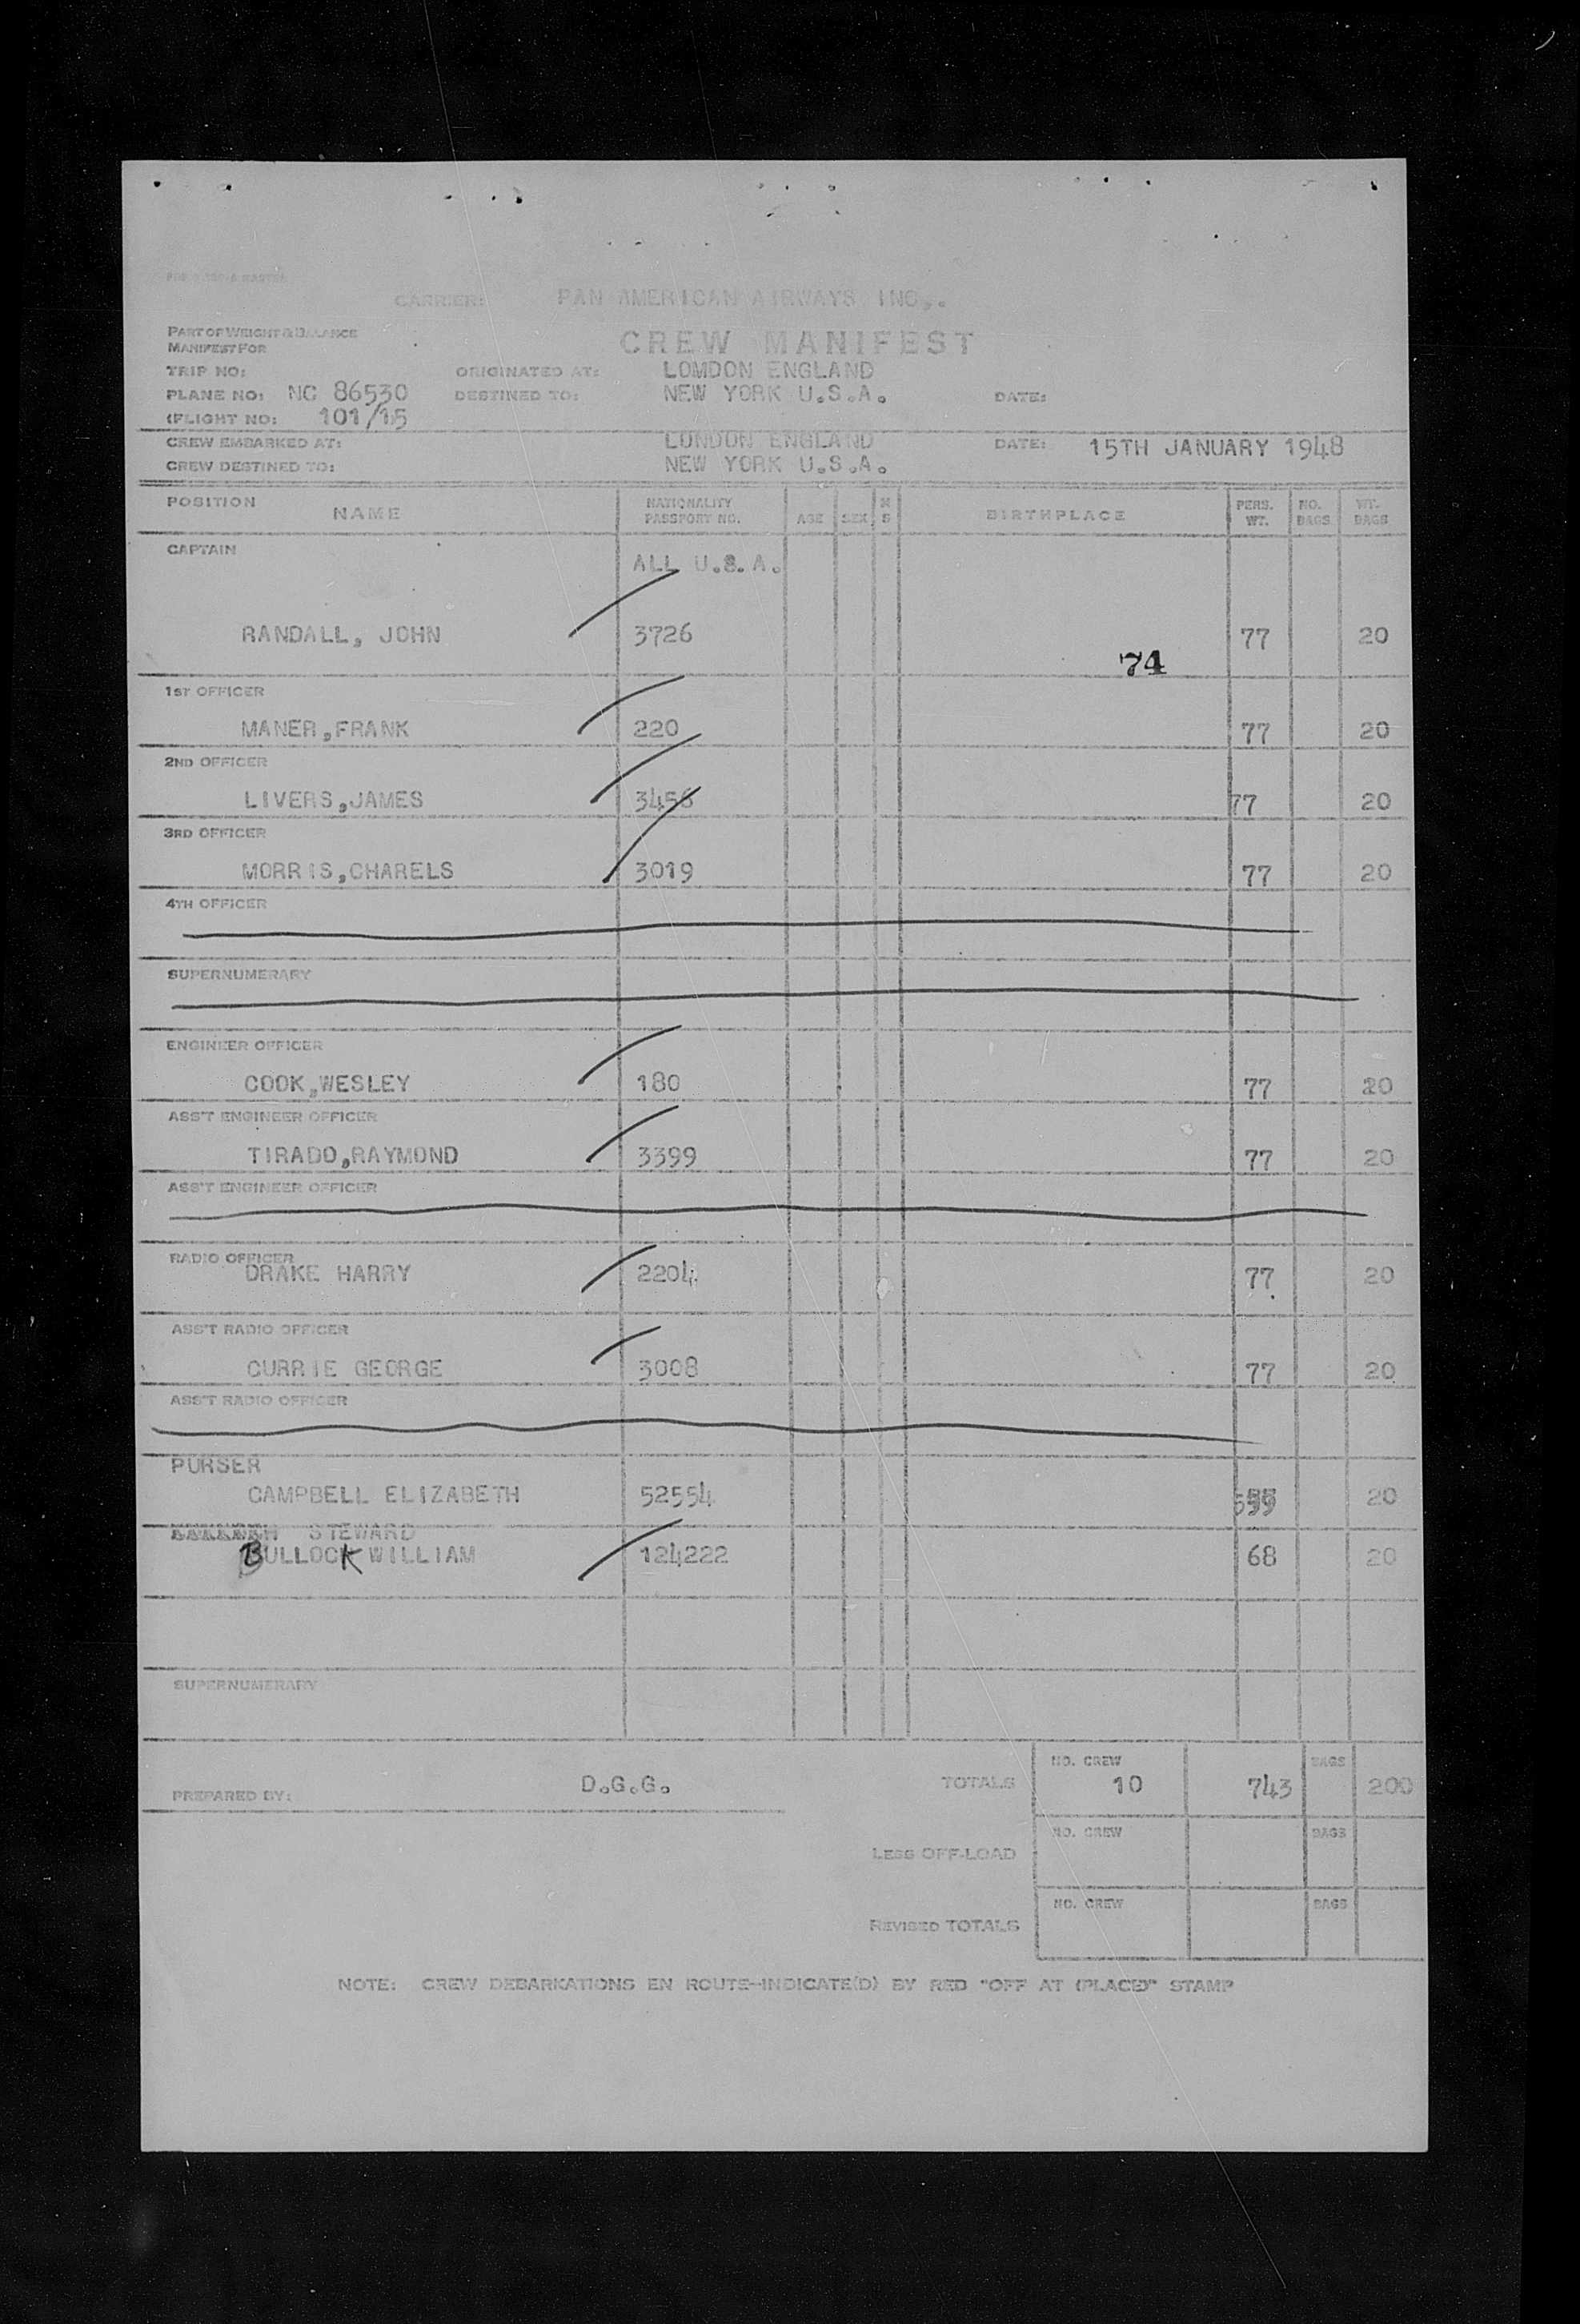 CARRIER: PAN AMERICAN AIRWAYS INC,.
PART OF WEIGHT & BALANCE
MANIFEST FOR
CREW MANIFEST
TRIP NO: ORIGINATED AT: LOMDON ENGLAND
PLANE NO: NC 86530 DESTINED TO: NEW YORK U.S.A. DATE:
(FLIGHT NO: 101/15
CREW EMBARKED AT: LONDON ENGLAND DATE: 15TH JANUARY 1948
CREW DESTINED TO: NEW YORK U.S.A.
POSITION NAME NATIONALITY PASSPORT NO. AGE SEX M S BIRTHPLACE PERS. WT. NO. BAGS WT. BAGS
CAPTAIN
ALL U.S.A.
RANDALL, JOHN 3726 77 20
74
1ST OFFICER
MANER,FRANK 220 77 20
2ND OFFICER
LIVERS,JAMES 3456 77 20
3RD OFFICER
MORRIS,CHARELS 3019 77 20
4TH OFFICER
SUPERNUMERARY
ENGINEER OFFICER
COOK,WESLEY 180 77 20
ASS'T ENGINEER OFFICER
TIRADO,RAYMOND 3399 77 20
ASS'T ENGINEER OFFICER
RADIO OFFICER
DRAKE HARRY 2204 77 20
ASS'T RADIO OFFICER
CURRIE GEORGE 3008 77 20
ASS'T RADIO OFFICER
PURSER
CAMPBELL ELIZABETH 52554 20
STEWARD
BULLOCK WILLIAM 124222 68 20
SUPERNUMERARY
PREPARED BY: D.G.G. TOTALS NO. CREW 10 743 BAGS 200
LESS OFF-LOAD NO. CREW BAGS
REVISED TOTALS NO. CREW BAGS
NOTE: CREW DEBARKATIONS EN ROUTE--INDICATE(D) BY RED "OFF AT (PLACE)" STAMP